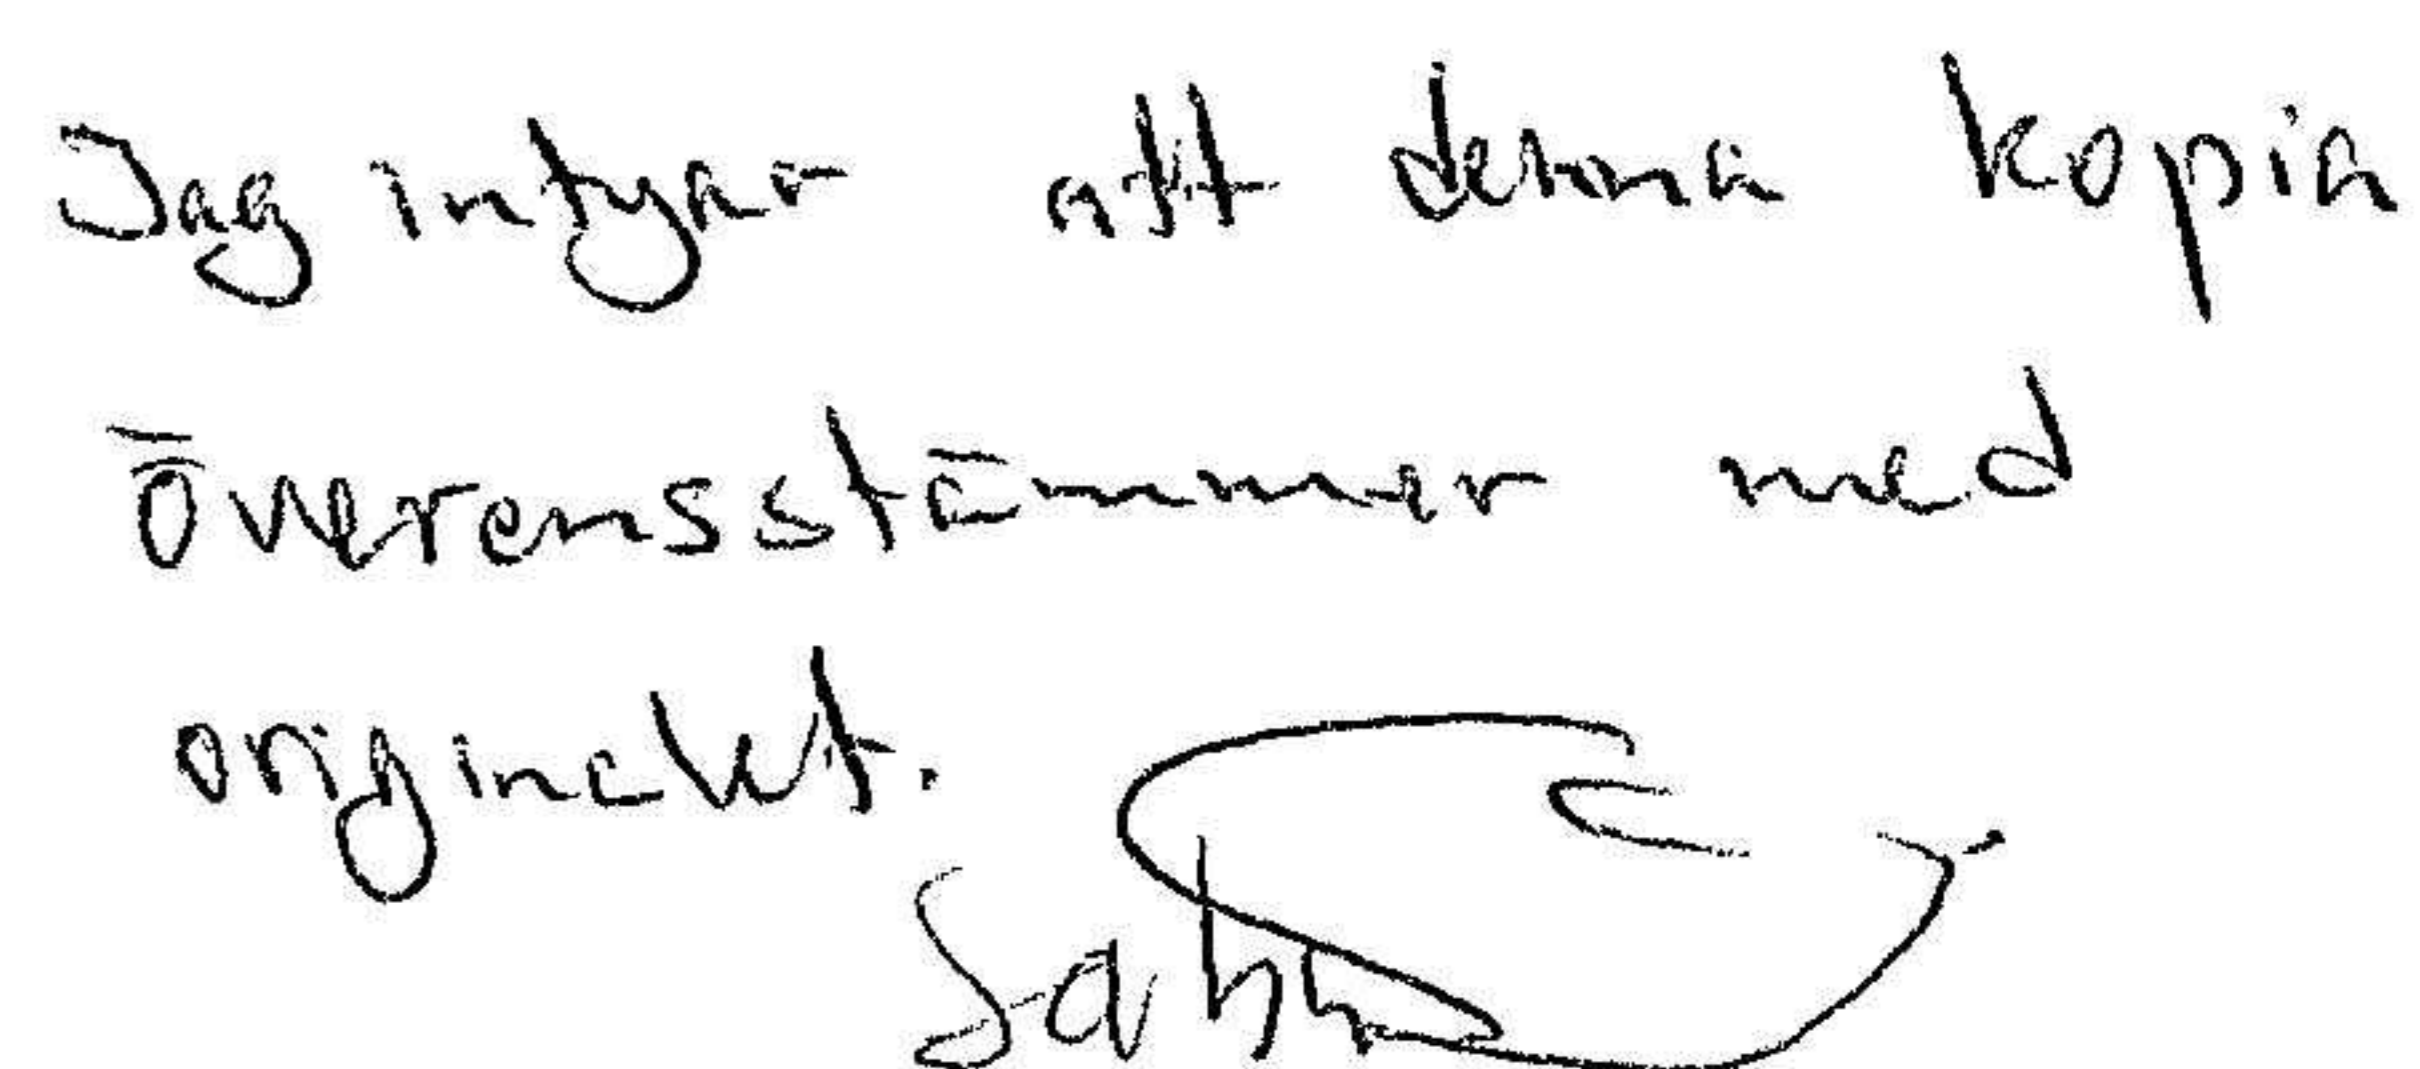 Jag intygar att denna kopia
överensstämmer med
originalet.